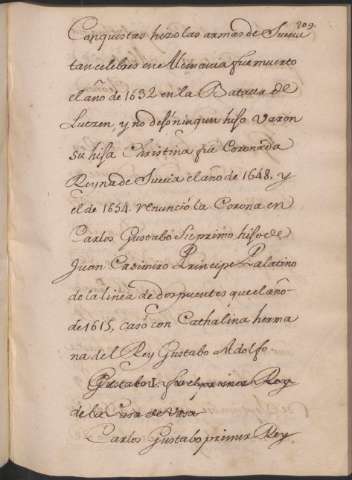 209.
Conquistas hizo las armas de Suecia
tan celebres en Alemania fue muerto
el año de 1632 en la Batalla de
Lutzen, y no dejó ningun hijo Varon
su hija Christina fue Coronada
Reyna de Suecia el año de 1648. y
el de 1654. renunció la Corona en
Carlos Gustabo su primo hijo de
Juan Casimiro Principe Palatino
de la linea de dos puentes que el año
de 1615, casó con Cathalina herma
na del Rey Gustabo Adolfo.
Gustabo I. fue el primer Rey
de la Casa de Vasa
Carlos Gustabo primer Rey